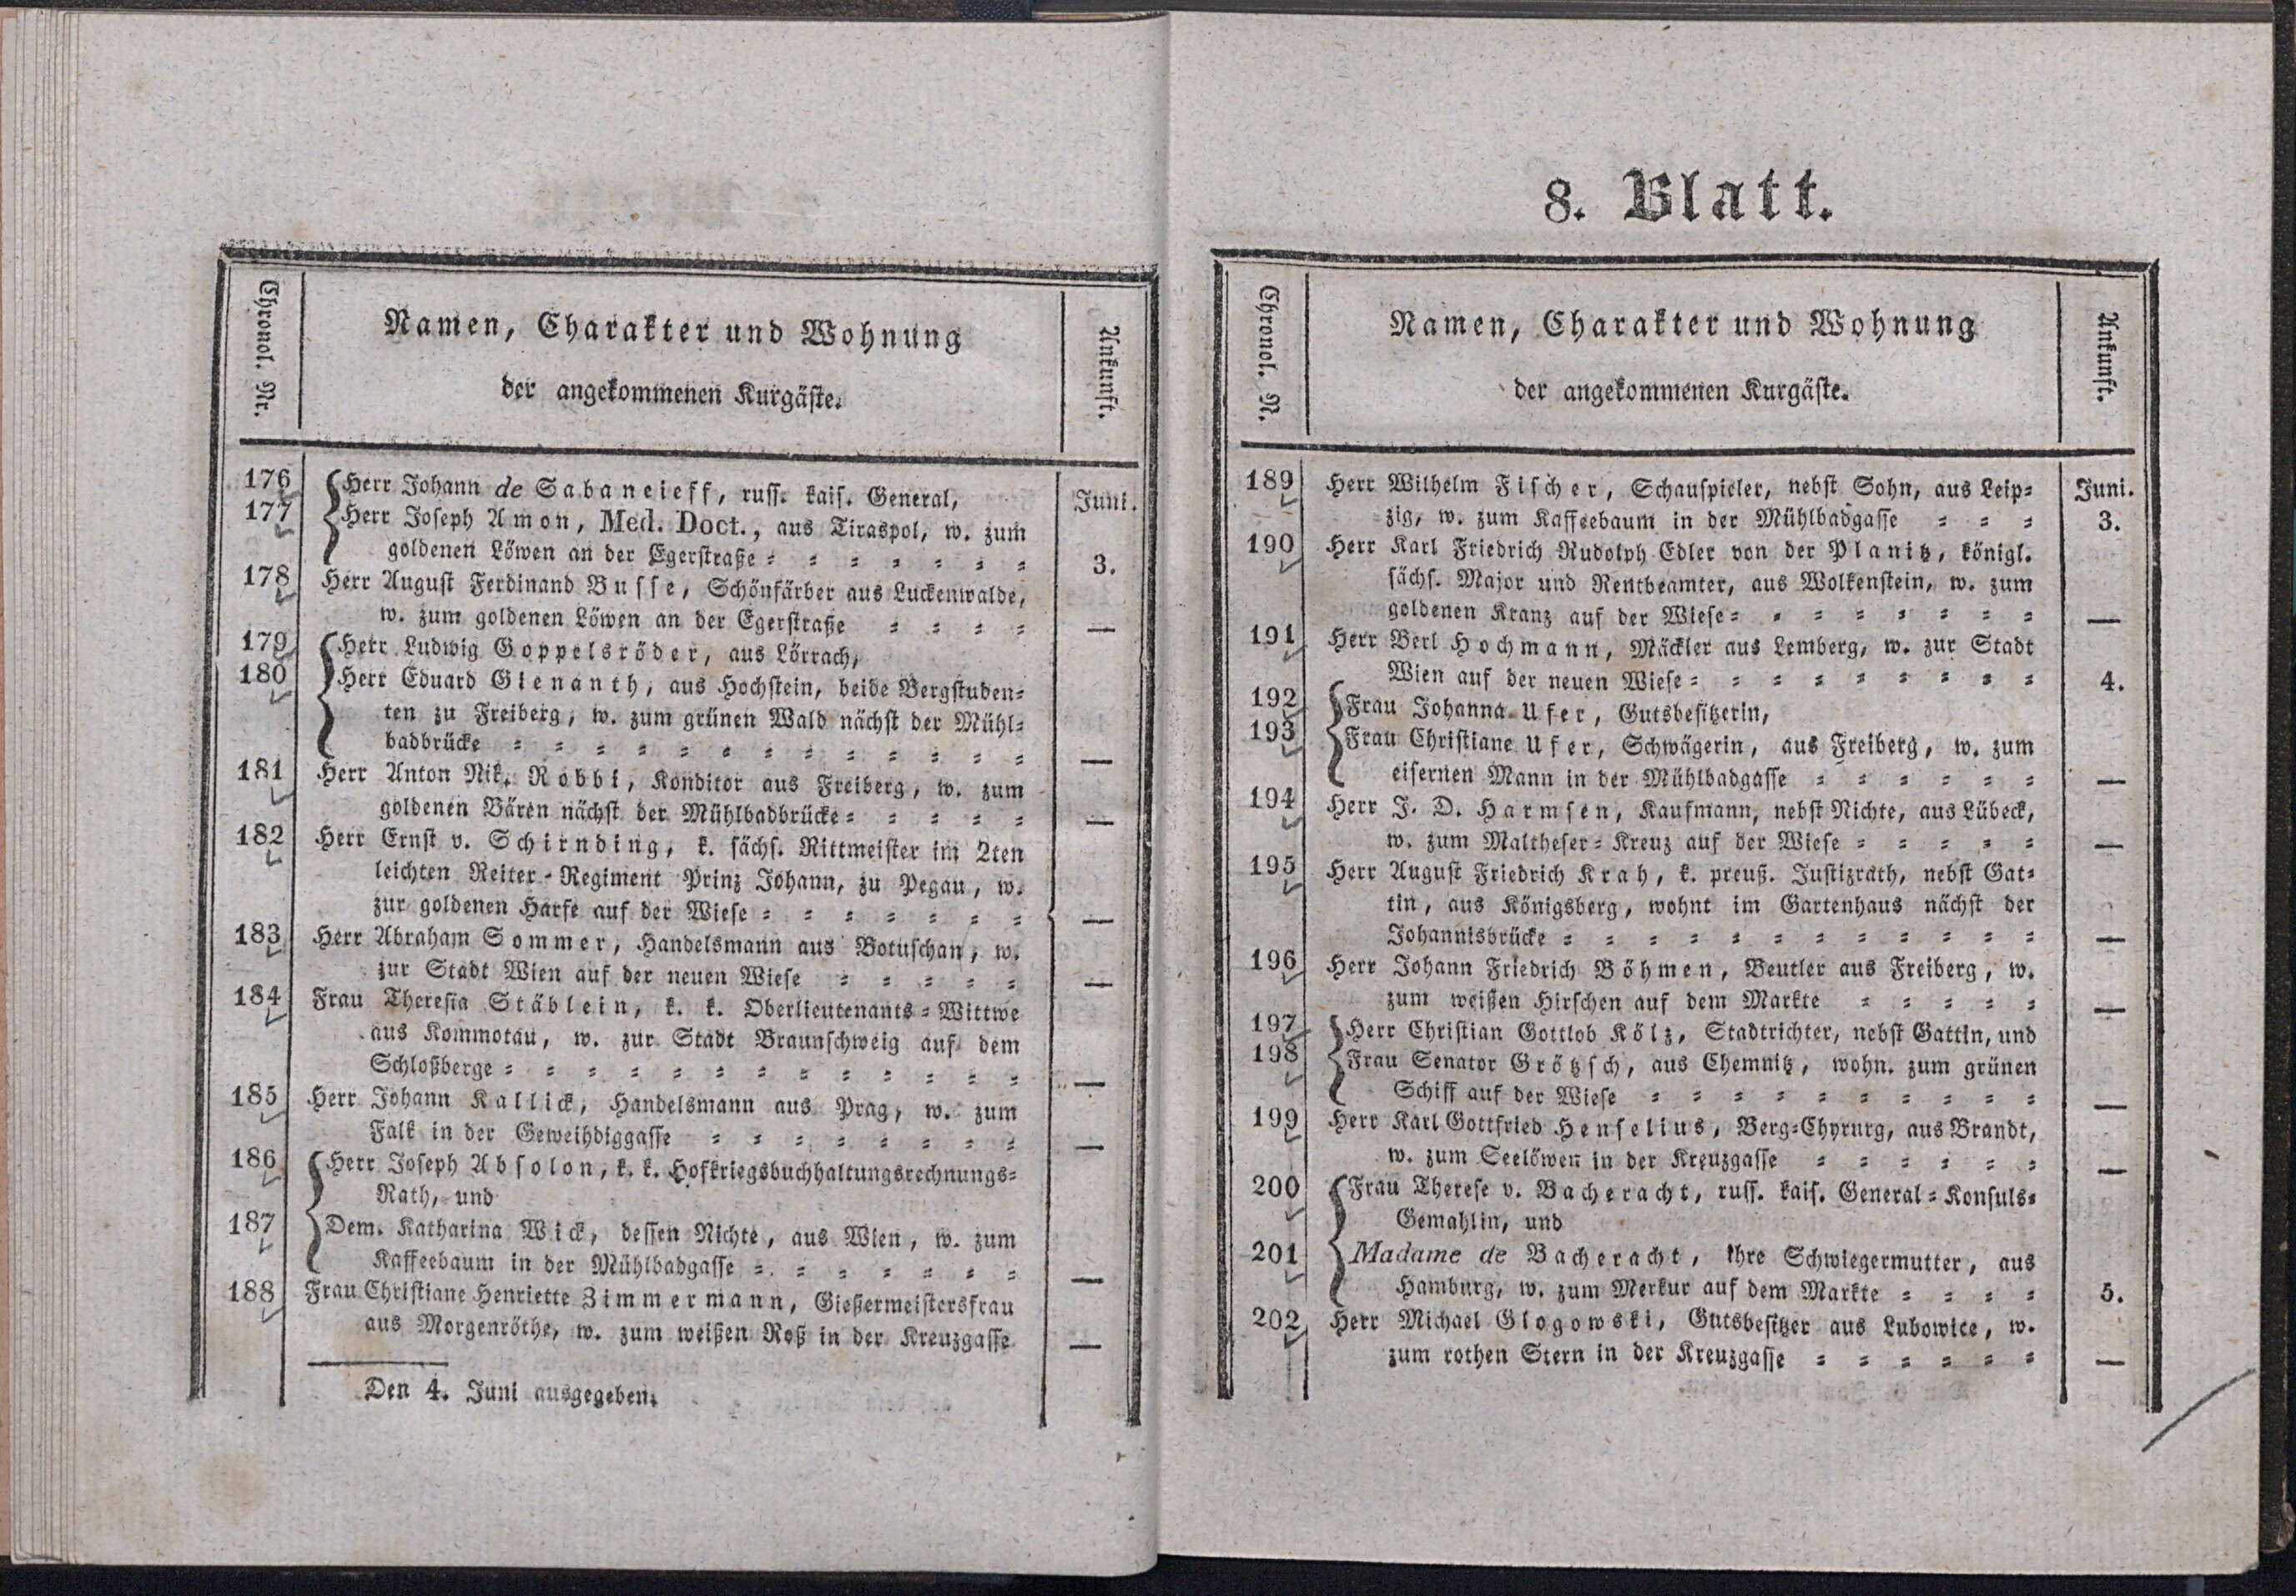 Chronol. Nr.
Namen, Charakter und Wohnung
der angekommenen Kurgäste.
Ankunft.
176 Herr Johann de Sabaneieff, russ. kais. General, Juni.
177 Herr Joseph Amon, Med. Doct., aus Tiraspol, w. zum
goldenen Löwen an der Egerstraße = = = = = = = 3.
178 Herr August Ferdinand Busse, Schönfärber aus Luckenwalde,
w. zum goldenen Löwen an der Egerstraße = = = = —
179 Herr Ludwig Goppelsröder, aus Lörrach,
180 Herr Eduard Gienanth, aus Hochstein, beide Bergstuden=
ten zu Freiberg, w. zum grünen Wald nächst der Mühl=
badbrücke = = = = = = = = = = = = = —
181 Herr Anton Nik. Robbi, Konditor aus Freiberg, w. zum
goldenen Bären nächst der Mühlbadbrücke = = = = = —
182 Herr Ernst v. Schirnding, k. sächs. Rittmeister im 2ten
leichten Reiter-Regiment Prinz Johann, zu Pegau, w.
zur goldenen Harfe auf der Wiese = = = = = = = —
183 Herr Abraham Sommer, Handelsmann aus Botuschan, w.
zur Stadt Wien auf der neuen Wiese = = = = = —
184 Frau Theresia Stäblein, k. k. Oberlieutenants=Wittwe
aus Kommotau, w. zur Stadt Braunschweig auf dem
Schloßberge = = = = = = = = = = = = = —
185 Herr Johann Kallick, Handelsmann aus Prag, w. zum
Falk in der Geweihdiggasse = = = = = = = = —
186 Herr Joseph Absolon, k. k. Hofkriegsbuchhaltungsrechnungs=
Rath, und
187 Dem. Katharina Wick, dessen Nichte, aus Wien, w. zum
Kaffeebaum in der Mühlbadgasse = = = = = = = —
188 Frau Christiane Henriette Zimmermann, Gießermeistersfrau
aus Morgenröthe, w. zum weißen Roß in der Kreuzgasse —
Den 4. Juni ausgegeben.
8. Blatt.
Chronol. N.
Namen, Charakter und Wohnung
der angekommenen Kurgäste.
Ankunft.
189 Herr Wilhelm Fischer, Schauspieler, nebst Sohn, aus Leip= Juni.
zig, w. zum Kaffeebaum in der Mühlbadgasse = = = 3.
190 Herr Karl Friedrich Rudolph Edler von der Planitz, königl.
sächs. Major und Rentbeamter, aus Wolkenstein, w. zum
goldenen Kranz auf der Wiese = = = = = = = = —
191 Herr Berl Hochmann, Mäckler aus Lemberg, w. zur Stadt
Wien auf der neuen Wiese = = = = = = = = = 4.
192 Frau Johanna Ufer, Gutsbesitzerin,
193 Frau Christiane Ufer, Schwägerin, aus Freiberg, w. zum
eisernen Mann in der Mühlbadgasse = = = = = = —
194 Herr J. D. Harmsen, Kaufmann, nebst Nichte, aus Lübeck,
w. zum Maltheser=Kreuz auf der Wiese = = = = = —
195 Herr August Friedrich Krah, k. preuß. Justizrath, nebst Gat=
tin, aus Königsberg, wohnt im Gartenhaus nächst der
Johannisbrücke = = = = = = = = = = = = —
196 Herr Johann Friedrich Böhmen, Beutler aus Freiberg, w.
zum weißen Hirschen auf dem Markte = = = = = —
197 Herr Christian Gottlob Kölz, Stadtrichter, nebst Gattin, und
198 Frau Senator Grötzsch, aus Chemnitz, wohn. zum grünen
Schiff auf der Wiese = = = = = = = = = = —
199 Herr Karl Gottfried Henselius, Berg=Chyrurg, aus Brandt,
w. zum Seelöwen in der Kreuzgasse = = = = = = —
200 Frau Therese v. Bacheracht, russ. kais. General=Konsuls=
Gemahlin, und
201 Madame de Bacheracht, ihre Schwiegermutter, aus
Hamburg, w. zum Merkur auf dem Markte = = = = 5.
202 Herr Michael Glogowski, Gutsbesitzer aus Lubowice, w.
zum rothen Stern in der Kreuzgasse = = = = = = —